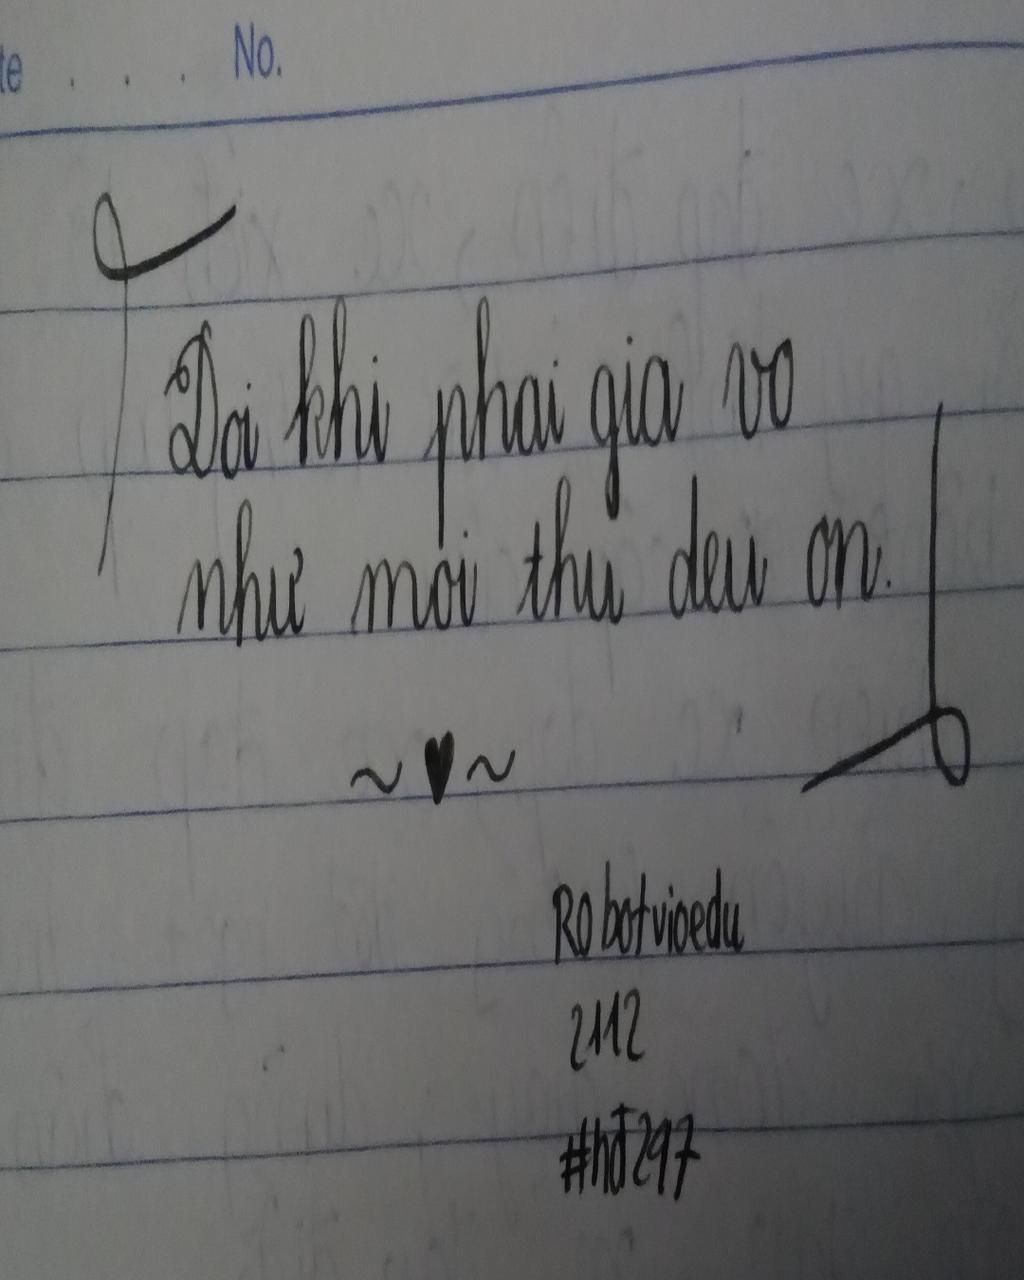 te . . . No.
Doi khi phai gia vo
như moi thu deu on.
~♥~
Robotvioedu
2112
#hđ297